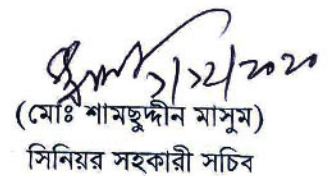 ১/১২/২০২০
(মোঃ শামছুদ্দীন মাসুম)
সিনিয়র সহকারী সচিব